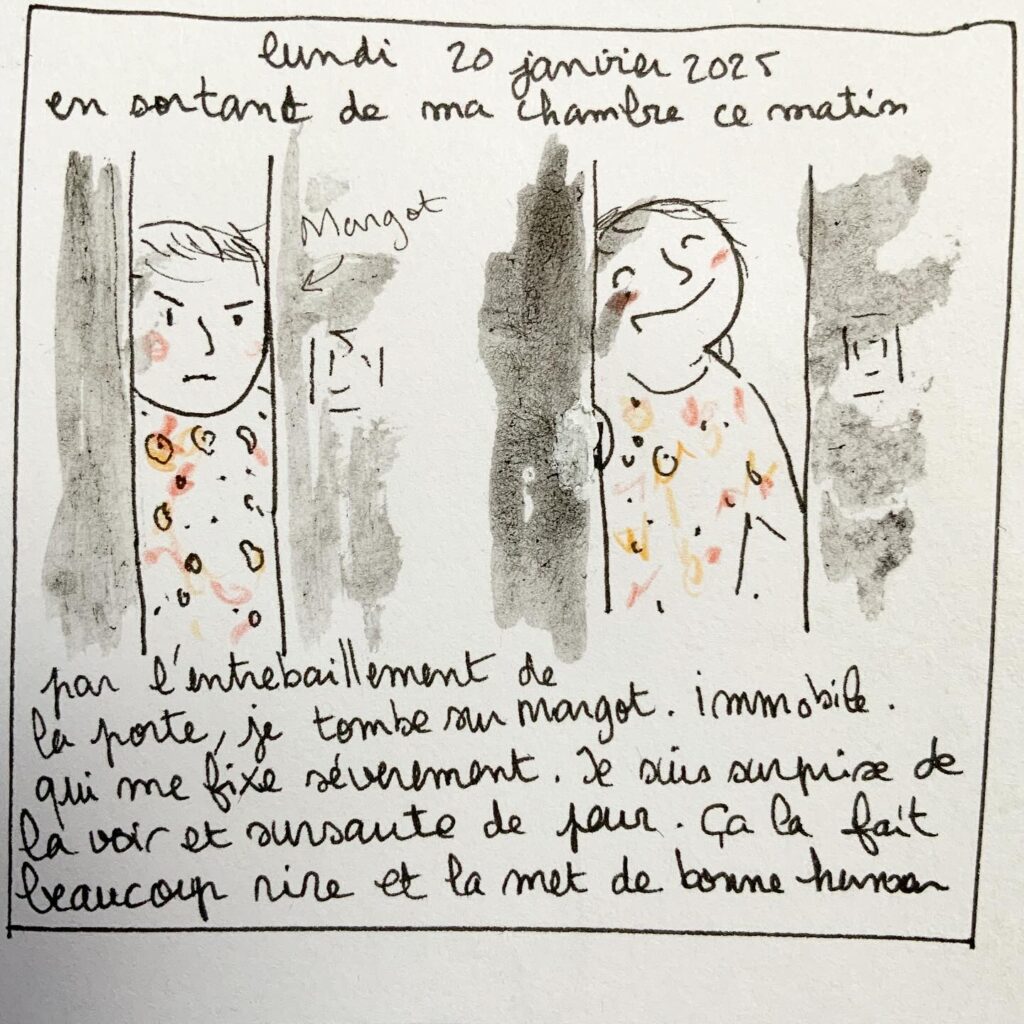 lundi 20 janvier 2025
en sortant de ma chambre ce matin
Margot
par l'entrebaillement de
la porte, je tombe sur Margot. immobile.
qui me fixe sévèrement. Je suis surprise de
la voir et sursaute de peur. Ça la fait
beaucoup rire et la met de bonne humeur